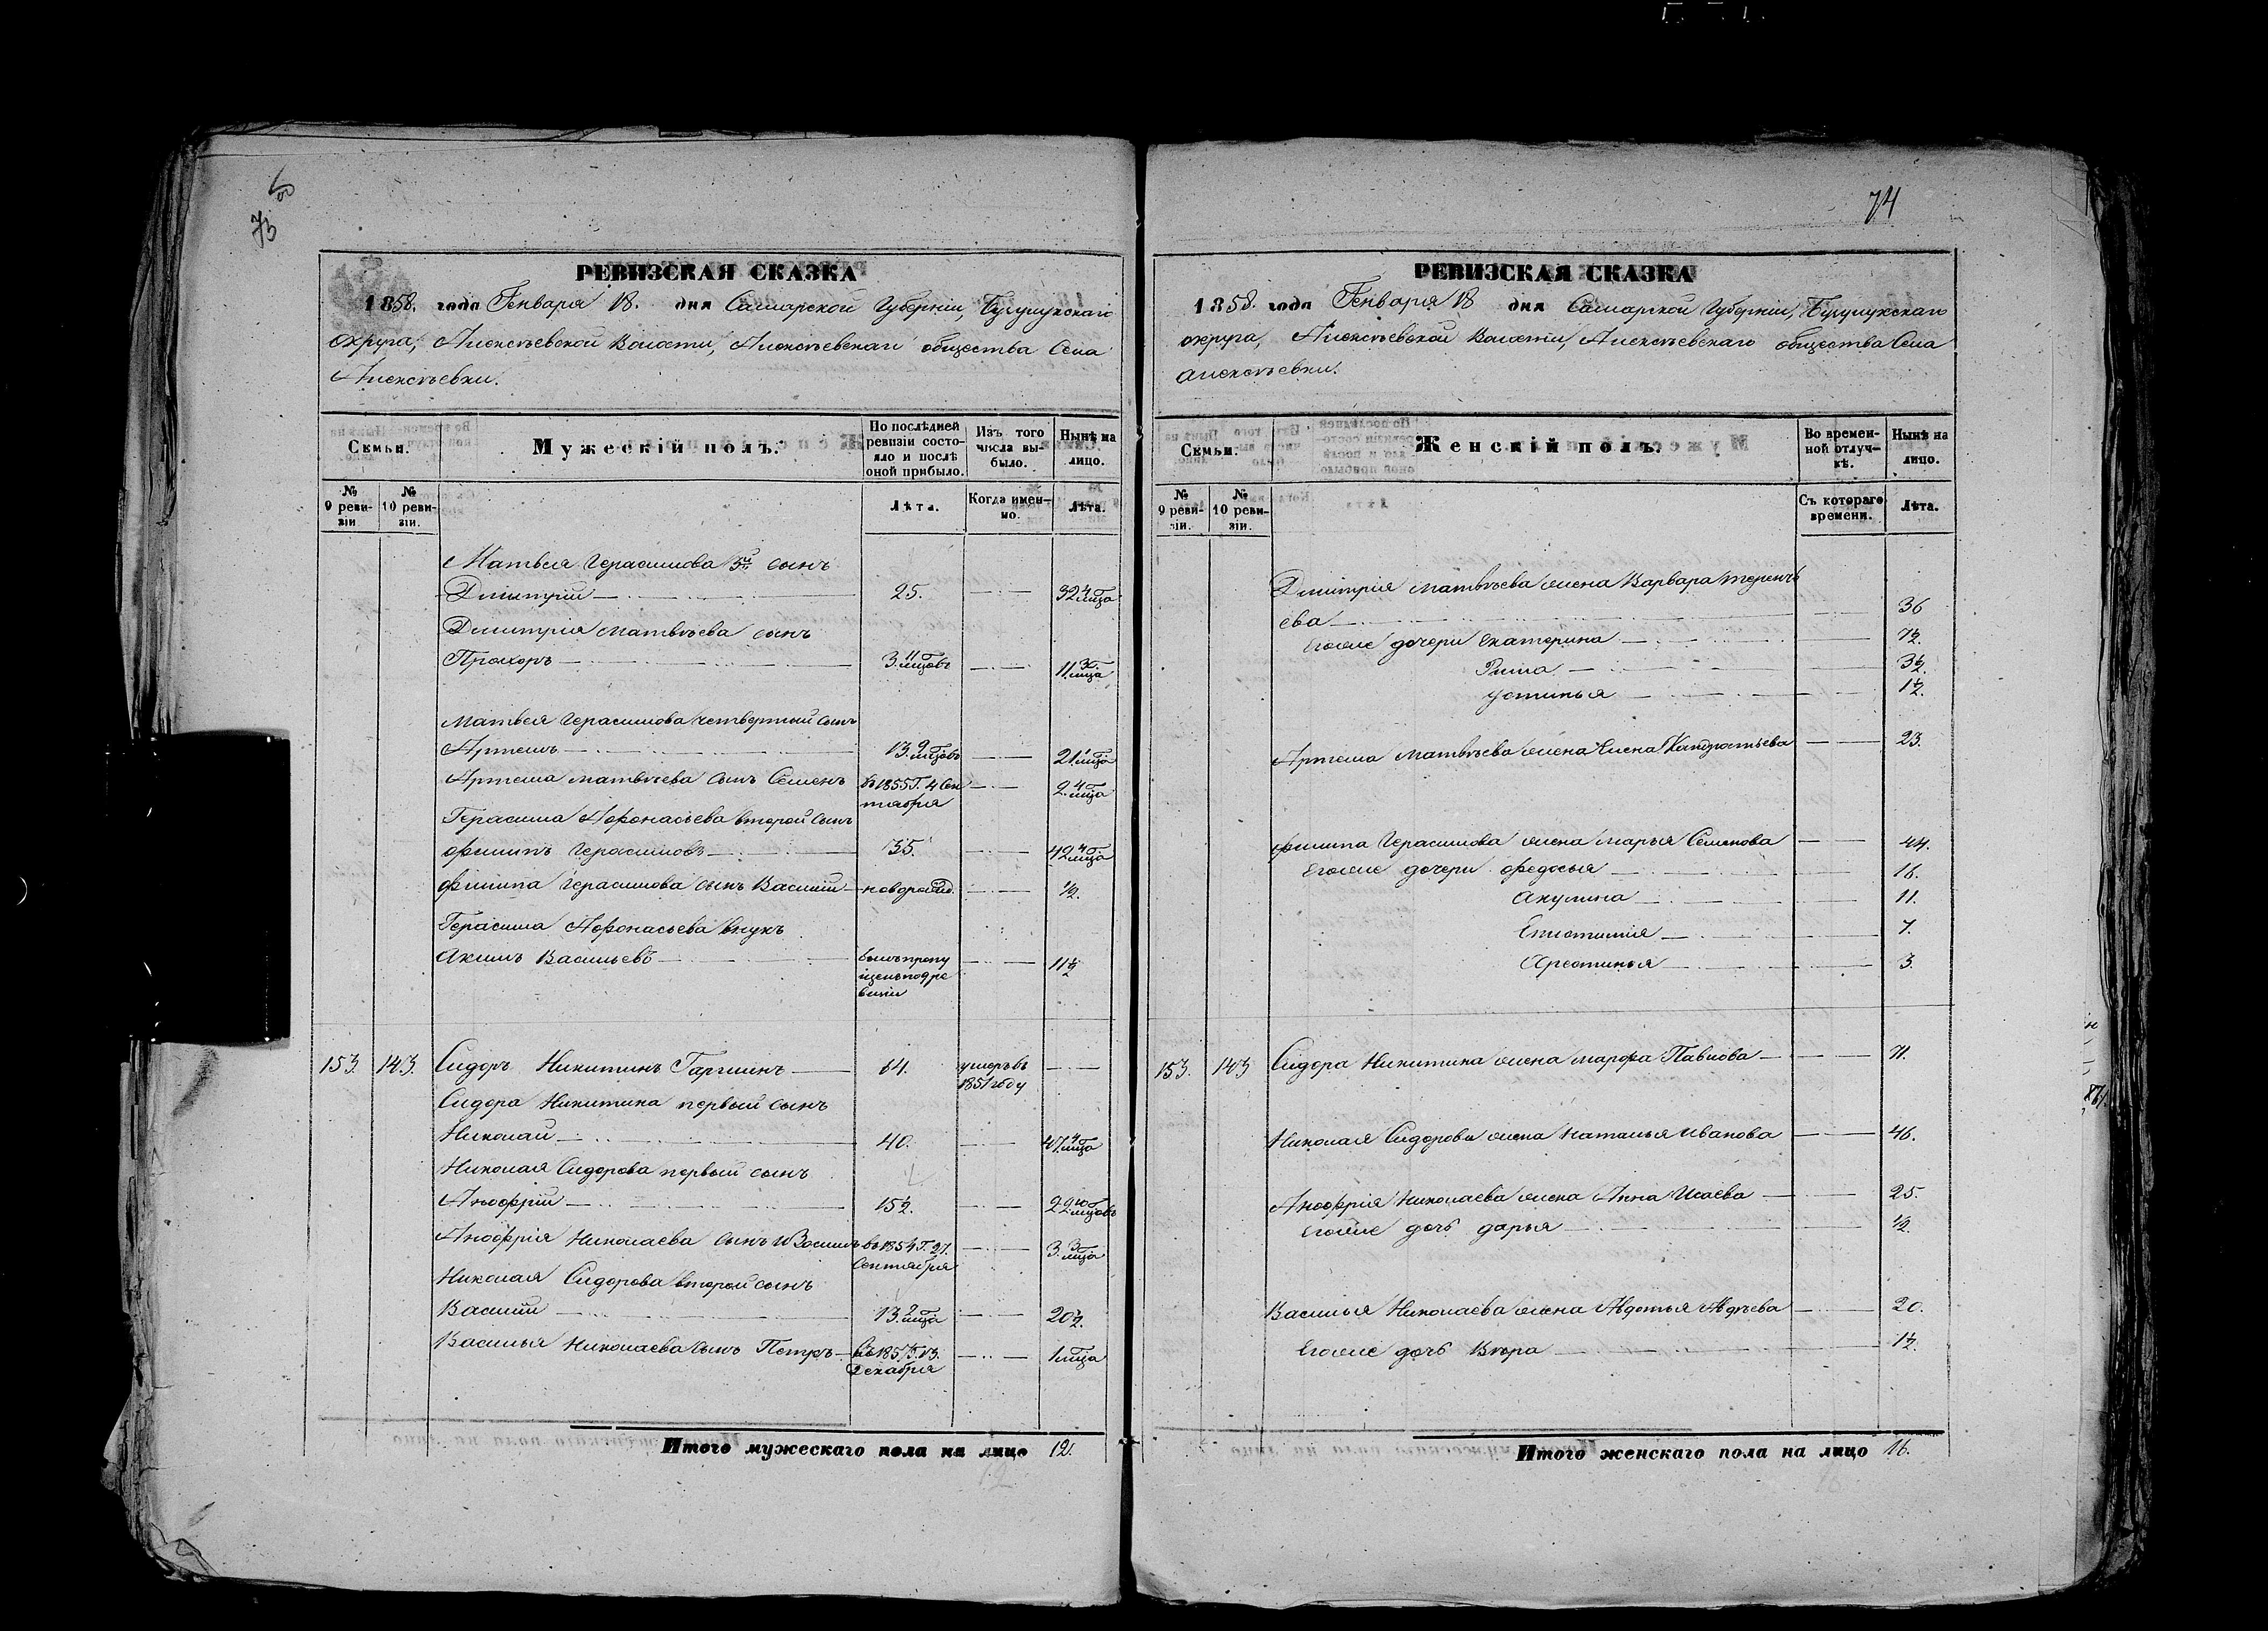 73
РЕВИЗСКАЯ СКАЗКА
1858. года Генваря 18. дня Самарской Губернии, Бугурукскаго
округа, Алексѣевской Волости, Алексѣевскаго общества Села
Алексѣевки.
Семьи.
Мужескій полъ.
По послѣдней ревизіи состояло и послѣ оной прибыло.
Изъ того числа выбыло.
Нынѣ на лицо.
№ 9 ревизіи
№ 10 ревизіи.
Лѣта.
Когда именно.
Лѣта.
Матвея Герасимова 3й сынъ
Дмитрій 25. 32 4 мца
Дмитрія Матвѣева сынъ
Прохоръ 3. 11 мцовъ 11. мца
Матвея Герасимова четвертый сынъ
Артемъ 13. 9 мцовъ 21 мца
Артема Матвѣева сынъ Семенъ въ 1855 г. 4 Сен 2. 4 мца
тября
Герасима Афонасьева второй сынъ
Филипъ Герасимовъ 35. 42 4 мца
Филипа Герасимова сынъ Василий новорожд. ½.
Герасима Афонасьева внукъ
Акимъ Васильевъ былъ пропу 11½
щенъ по 9 ре
визіи
153. 143. Сидоръ Никитинъ Гаршинъ 64. умеръ въ
1851 году
Сидора Никитина первый сынъ
Николай 40. 47. 4 мца
Николая Сидорова первый сынъ
Анофрій 15½. 22 10 мцовъ
Анофрія Николаева сынъ Василий въ 1854 г. 27. 3. 3 мца
Сентября
Николая Сидорова второй сынъ
Василий 13. 2 мца 20½.
Василья Николаева сынъ Петръ въ 185 г. 13. 1 мца
Декабря
Итого мужескаго пола на лицо 12.
74
РЕВИЗСКАЯ СКАЗКА
1858. года Генваря 18 дня Самарской Губерніи, Бугурукскаго
округа, Алексѣевской Волости, Алексѣевскаго общества Села
Алексѣевки.
Семьи.
Женскій полъ.
Во временной отлучкѣ.
Нынѣ на лицо.
№ 9 ревизіи.
№ 10 ревизіи.
Съ котораго времени.
Лѣта.
Дмитрія Матвѣева жена Варвара Терентѣ
ева 36
Его же дочери Екатерина 7½.
Рима 3½.
Устинья 1½.
Артема Матвѣева жена Елена Кандратьева 23.
Филипа Герасимова жена Марья Семенова 44.
Его же дочери Федосья 16.
Акулина 11.
Епистимія 7.
Арестинья 3.
153. 143 Сидора Никитина жена Марфа Павлова 71.
Николая Сидорова жена Наталья Иванова 46.
Анофрія Николаева жена Анна Исаева 25.
Его же дочь Дарья ½.
Василья Николаева жена Авдотья Авдѣева 20.
Его же дочь Вѣра 1½.
Итого женскаго пола на лицо 16.